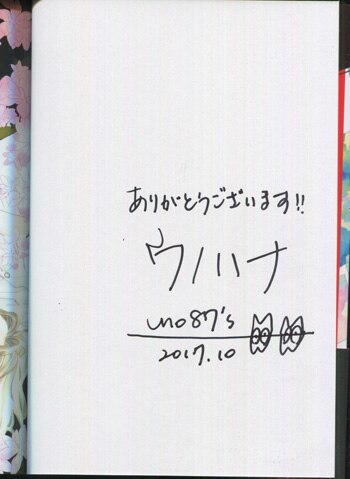 ありがとうございます!!
ウノハナ
uno87's
2017.10